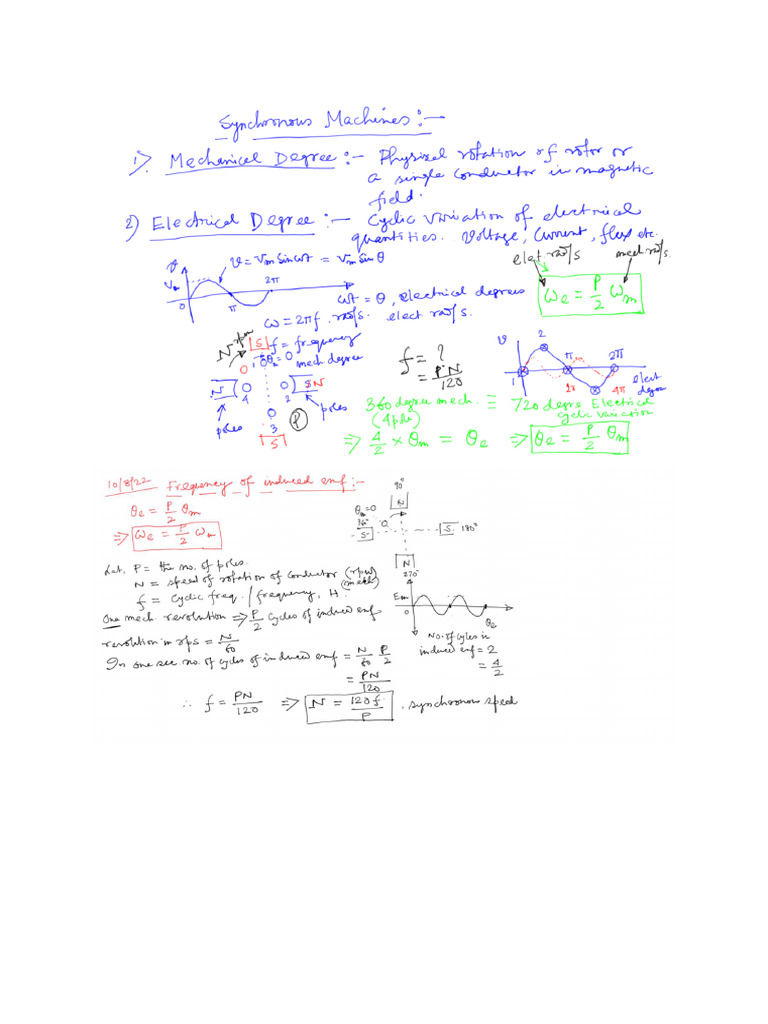 Synchronous Machines:-
1). Mechanical Degree:- Physical rotation of rotor or
a single conductor in magnetic
field.
2) Electrical Degree:- Cyclic variation of electrical
quantities. Voltage, Current, flux etc.
elect rad/s mech rad/s.
v
v = Vm Sin ωt = Vm Sin θ
Vm
0 π 2π
ωt = θ, electrical degrees
ωe = P/2 ωm
ω = 2πf. rad/s. elect rad/s.
N rpm
S f = frequency
θ = 0 mech degree
N 4 2 N
poles poles
3
S
P
f = ?
= PN/120
v
1 2 π 2π
2π 4π
elect degree
360 degree mech. ≡ 720 degre Electrical
(4 pole) cyclic variation
⇒ 4/2 × θm = θe ⇒ θe = P/2 θm
10/8/22 Frequency of induced emf:-
θe = P/2 θm
⇒ ωe = P/2 ωm
90°
N
θm = 0
S S 180°
N
270°
Let, P = the no. of poles.
N = speed of rotation of conductor (rpm)
(mech)
f = cyclic freq. / frequency, H.
One mech. revolution ⇒ P/2 cycles of induced emf
Em
0 θe
revolution in rps = N/60
No. of cyles in
induced emf = 2
= 4/2
In one sec. no. of cycles of induced emf = N/60 P/2
= PN/120
∴ f = PN/120 ⇒ N = 120f/P . synchronous speed